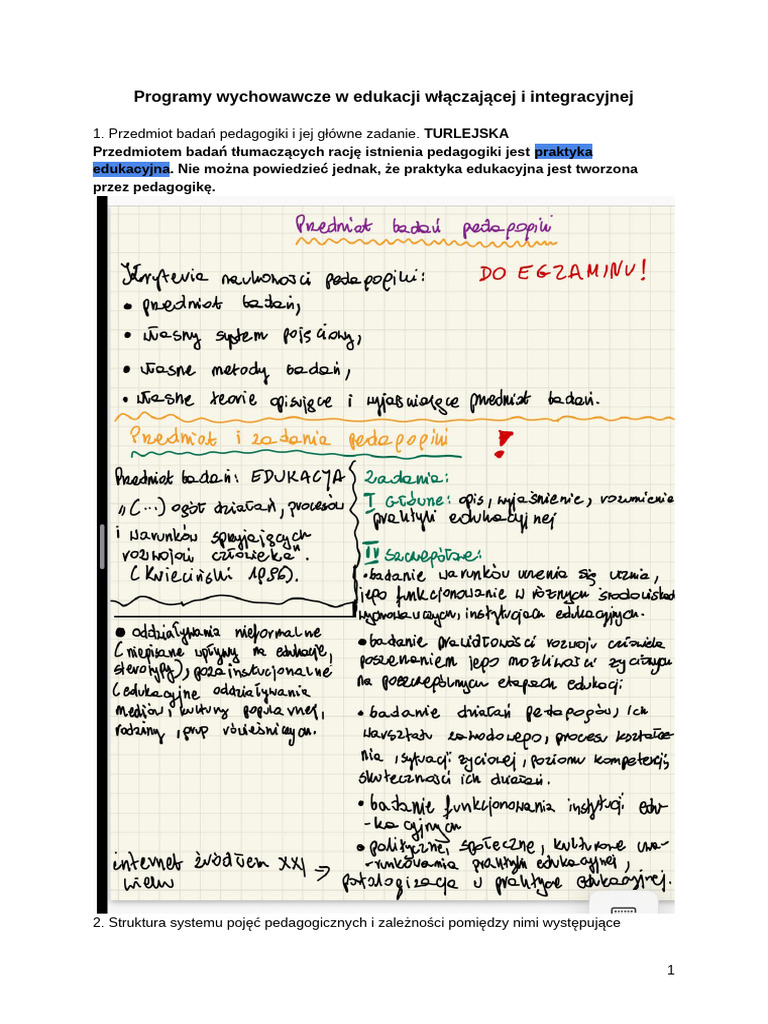 Programy wychowawcze w edukacji włączającej i integracyjnej
1. Przedmiot badań pedagogiki i jej główne zadanie. TURLEJSKA
Przedmiotem badań tłumaczących rację istnienia pedagogiki jest praktyka
edukacyjna. Nie można powiedzieć jednak, że praktyka edukacyjna jest tworzona
przez pedagogikę.
Przedmiot badań pedagogiki
Kryteria naukowości pedagogiki:
DO EGZAMINU!
• przedmiot badań,
• własny system pojęciowy,
• własne metody badań,
• własne teorie opisujące i wyjaśniające przedmiot badań.
Przedmiot i zadania pedagogiki !
Przedmiot badań: EDUKACJA
„(...) ogół działań, procesów
i warunków sprzyjających
rozwojowi człowieka".
(Kwieciński 1996).
• oddziaływania nieformalne
(niepisane wpływy na edukację,
stereotypy), pozainstucjonalne
(edukacyjne oddziaływania
mediów i kultury popularnej,
rodziny, grup rówieśniczych.
Zadania:
I Główne: opis, wyjaśnienie, rozumienie
praktyki edukacyjnej
IV szczegółowe:
• badanie warunków uczenia się ucznia,
jego funkcjonowanie w różnych środowiskach
wychowawczych, instytucjach edukacyjnych.
• badanie prawidłowości rozwoju człowieka
poszerzaniem jego możliwości życiowych
na poszczególnych etapach edukacji.
• badanie działań pedagogów, ich
warsztatu zawodowego, procesu kształce-
nia, sytuacji życiowej, poziomu kompetencji,
skuteczności ich działań.
• badanie funkcjonowania instytucji edu-
-kacyjnych
• politycznej społeczne, kulturowe uwa-
-runkowania praktyki edukacyjnej,
patologizacja w praktyce edukacyjnej.
internet źródłem XXI →
wieku
2. Struktura systemu pojęć pedagogicznych i zależności pomiędzy nimi występujące
1